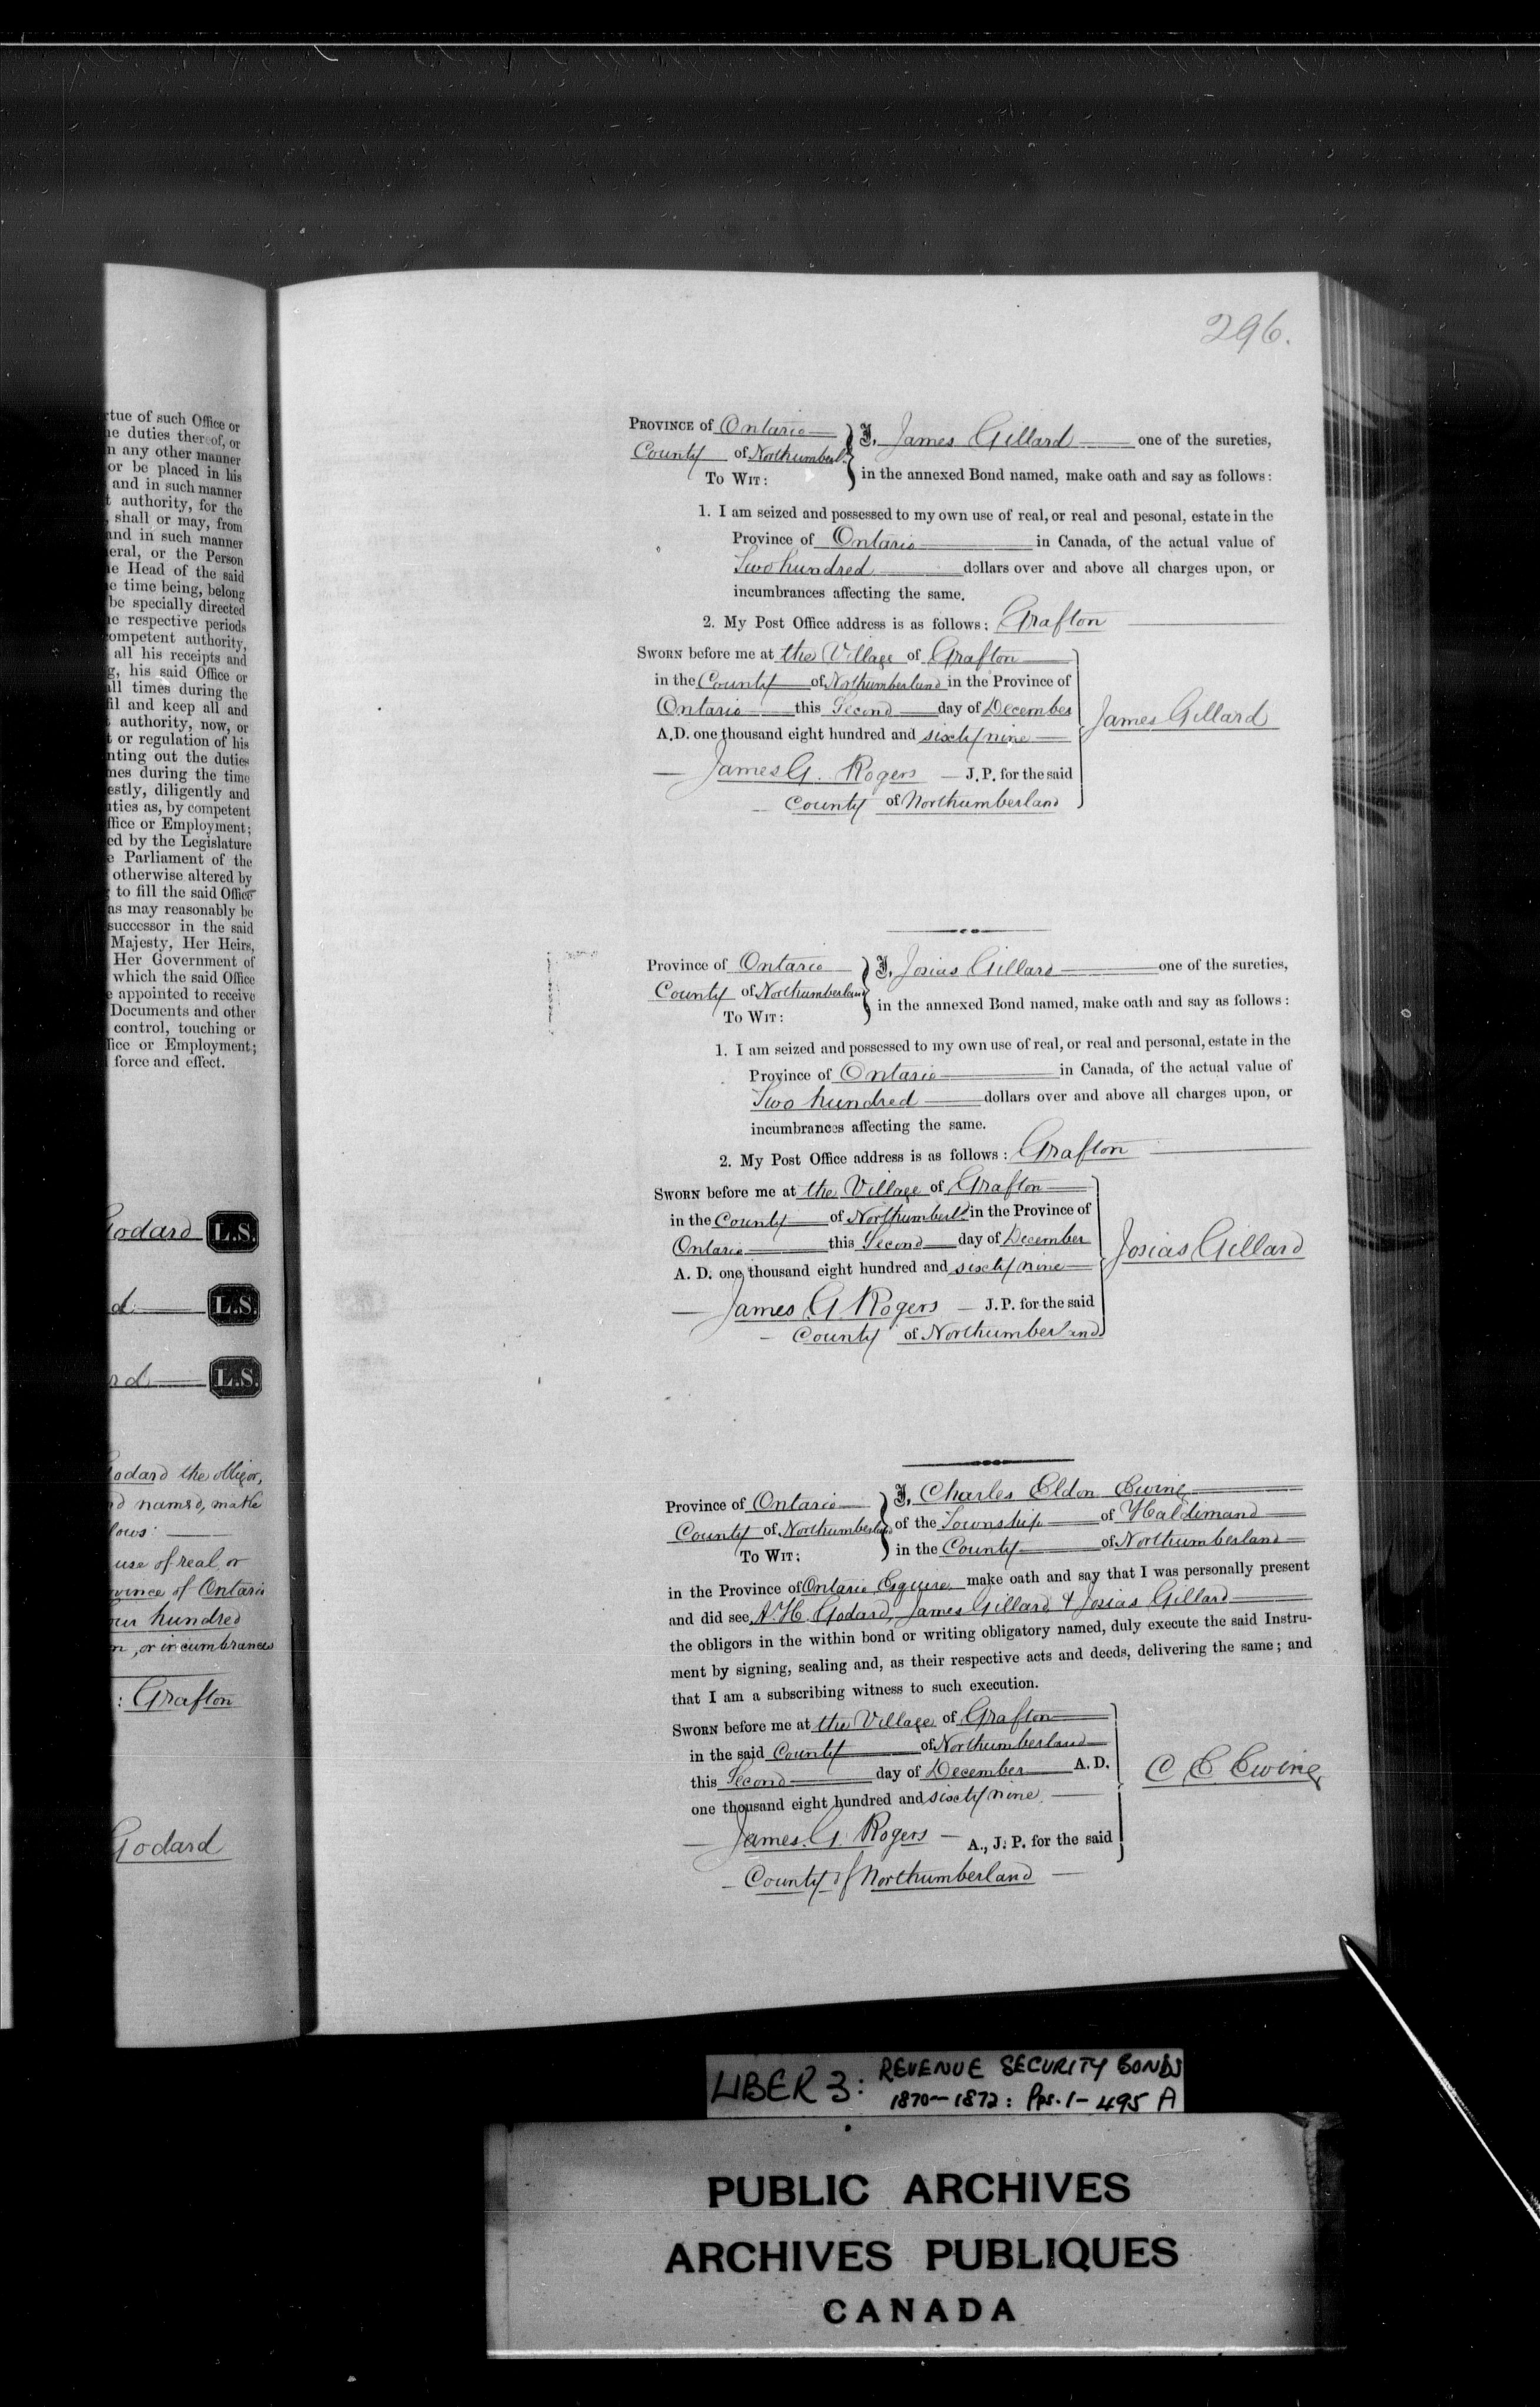 rtue of such Office or
e duties thereof, or
n any other manner
or be placed in his
and in such manner
t authority, for the
, shall or may, from
and in such manner
eral, or the Person
e Head of the said
e time being, belong
be specially directed
e respective periods
ompetent authority,
all his receipts and
g, his said Office or
all times during the
fil and keep all and
t authority, now, or
t or regulation of his
nting out the duties
mes during the time
estly, diligently and
uties as, by competent
ffice or Employment;
ed by the Legislature
e Parliament of the
otherwise altered by
g to fill the said Office
as may reasonably be
successor in the said
Majesty, Her Heirs,
Her Government of
which the said Office
e appointed to receive
Documents and other
control, touching or
ffice or Employment;
force and effect.
Godard L.S.
d L.S.
rd L.S.
Godard the obligor,
d named, make
lows:
use of real or
ovince of Ontario
our hundred
n, or incumbrances
: Grafton
Godard
296.
PROVINCE of Ontario
County of Northumberld.
TO WIT:
I, James Gillard one of the sureties,
in the annexed Bond named, make oath and say as follows:
1. I am seized and possessed to my own use of real, or real and pesonal, estate in the
Province of Ontario in Canada, of the actual value of
Two hundred dollars over and above all charges upon, or
incumbrances affecting the same.
2. My Post Office address is as follows: Grafton
SWORN before me at the Village of Grafton
in the County of Northumberland in the Province of
Ontario this Second day of December
A.D. one thousand eight hundred and sixty nine
James G. Rogers J.P. for the said
County of Northumberland
James Gillard
Province of Ontario
County of Northumberland
TO WIT:
I, Josias Gillard one of the sureties,
in the annexed Bond named, make oath and say as follows:
1. I am seized and possessed to my own use of real, or real and personal, estate in the
Province of Ontario in Canada, of the actual value of
Two hundred dollars over and above all charges upon, or
incumbrances affecting the same.
2. My Post Office address is as follows: Grafton
SWORN before me at the Village of Grafton
in the County of Northumberld. in the Province of
Ontario this Second day of December
A. D. one thousand eight hundred and sixty nine
James G. Rogers J.P. for the said
County of Northumberland
Josias Gillard
Province of Ontario
County of Northumberland
TO WIT:
I, Charles Eldon Ewing
of the Township of Haldimand
in the County of Northumberland
in the Province of Ontario Esquire make oath and say that I was personally present
and did see A. H. Godard, James Gillard & Josias Gillard
the obligors in the within bond or writing obligatory named, duly execute the said Instru-
ment by signing, sealing and, as their respective acts and deeds, delivering the same; and
that I am a subscribing witness to such execution.
SWORN before me at the Village of Grafton
in the said County of Northumberland
this Second day of December A.D.
one thousand eight hundred and sixty nine
James. G. Rogers A., J. P. for the said
County of Northumberland
C E Ewing
LIBER 3: REVENUE SECURITY BONDS
1870-1872: Pps. 1-495 A
PUBLIC ARCHIVES
ARCHIVES PUBLIQUES
CANADA